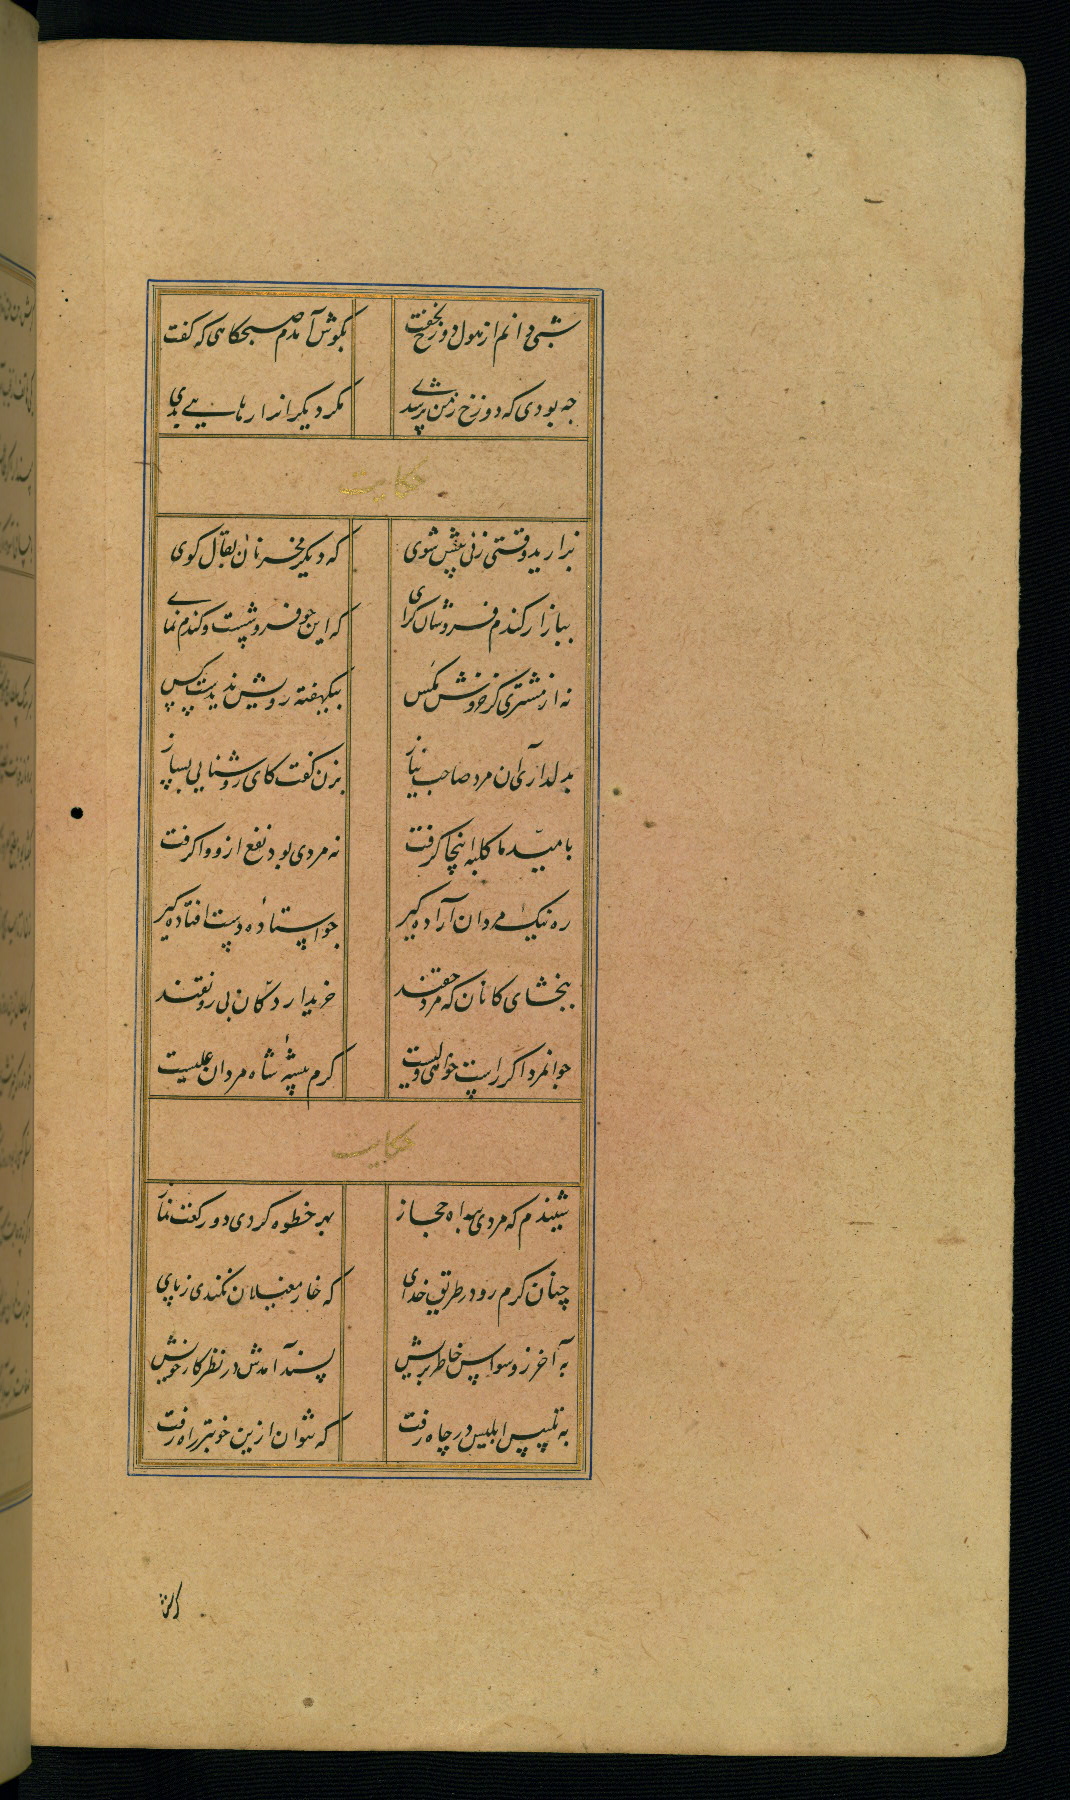 شبی دانم از هول دوزخ نخفت بگوش آمدم صبحگاهی که گفت
چه بودی که دوزخ ز من پر شدی مگر دیگرانرا رهایی بدی
حکایت
بزارید وقتی زنی پیش شوی که دیگر مخر نان بقال کوی
ببازار گندم فروشان گرای که این جو فروشست و گندم نمای
نه از مشتری کز خروش مگس بیکهفته رویش ندیدست کس
بدلداری آن مرد صاحب نیاز بزن گفت کای روشنایی بساز
بامید ما کلبه اینجا گرفت نه مردی بود نفع ازو وا گرفت
ره نیک مردان آزاده گیر چو استاده دست افتاده گیر
ببخشای کانان که مرد حقند خریدار دکان بی رونقند
جوانمرد اگر راست خواهی ولیست کرم پیشهٔ شاه مردان علیست
حکایت
شنیدم که مردی براه حجاز بهر خطوه کردی دو رکعت نماز
چنان گرم رو در طریق خدای که خار مغیلان نکندی ز پای
به آخر ز وسواس خاطر پریش پسند آمدش در نظر کار خویش
به تلبیس ابلیس در چاه رفت که نتوان ازین خوبتر راه رفت
گرش